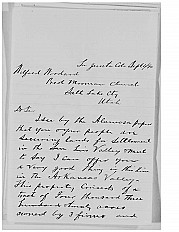 La Junta Col. Sept
Wilford Woodard
Prest Mormon Church
Salt Lake City
Utah
Dr Sir
I see by the Alamosa paper
that you or your people are
securing lands for settlement
in the San Luis Valley. I wish
to say I can offer you
a very good thing in this line
in the Arkansas Valley.
This property consists of a
tract of four thousand three
hundred and acres
owned by 3 firms and